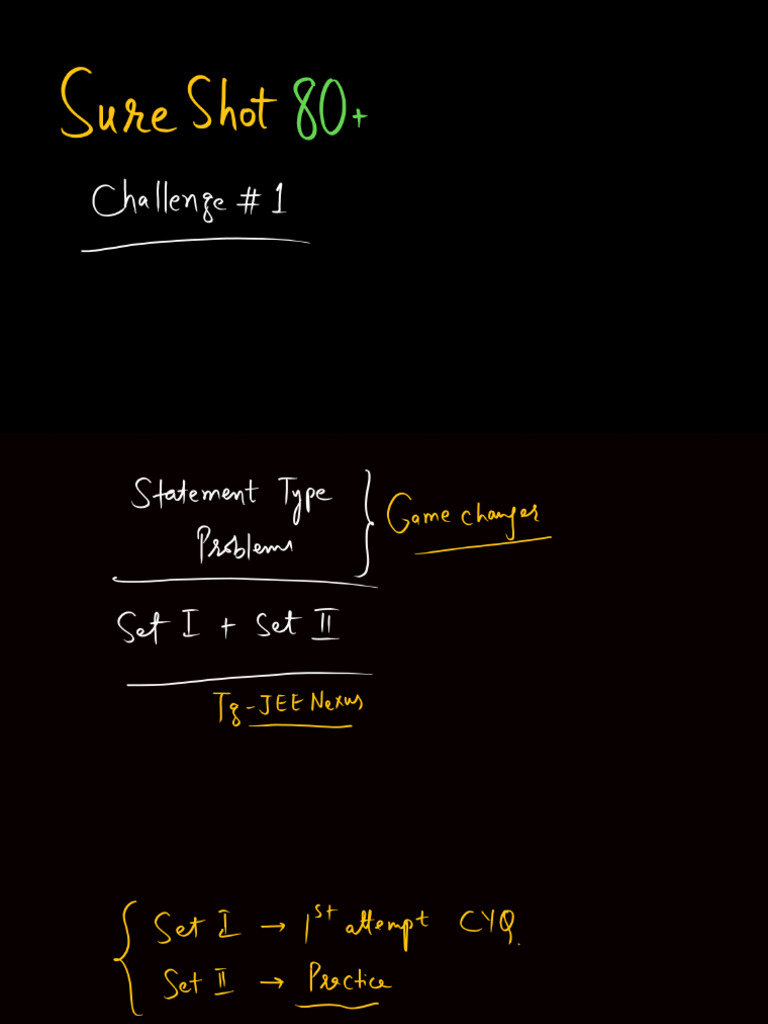 Sure Shot 80+
Challenge # 1
Statement Type
Problems
Game changer
Set I + Set II
Tg - JEE Nexus
Set I → 1st attempt CYQ.
Set II → Practice